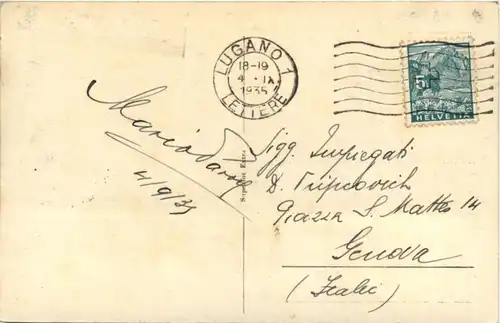 LUGANO 1
18-19
4 - IX
1935
LETTERE
5
HELVETIA
Mario
4/9/35
Sigg. Impiegati
D. Tripcovich
Piazza S. Matteo 14
Genova
(Italia)